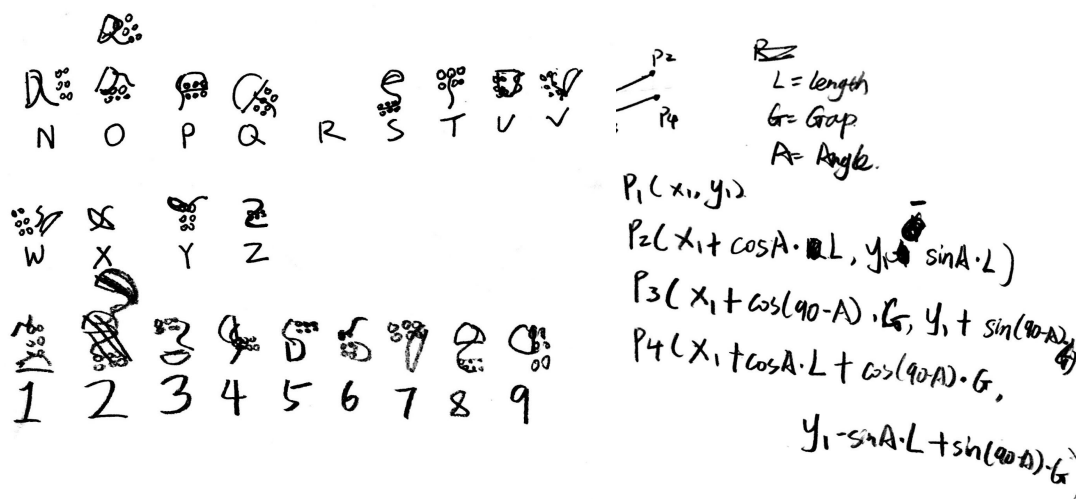 N O P Q R S T U V
W X Y Z
1 2 3 4 5 6 7 8 9
P2
P4
L = Length
G = Gap
A = Angle.
P1 (x1, y1)
P2 (x1 + cosA · L, y1 - sinA · L)
P3 (x1 + cos(90-A) · G, y1 + sin(90-A) · G)
P4 (x1 + cosA · L + cos(90-A) · G,
y1 - sinA · L + sin(90-A) · G)